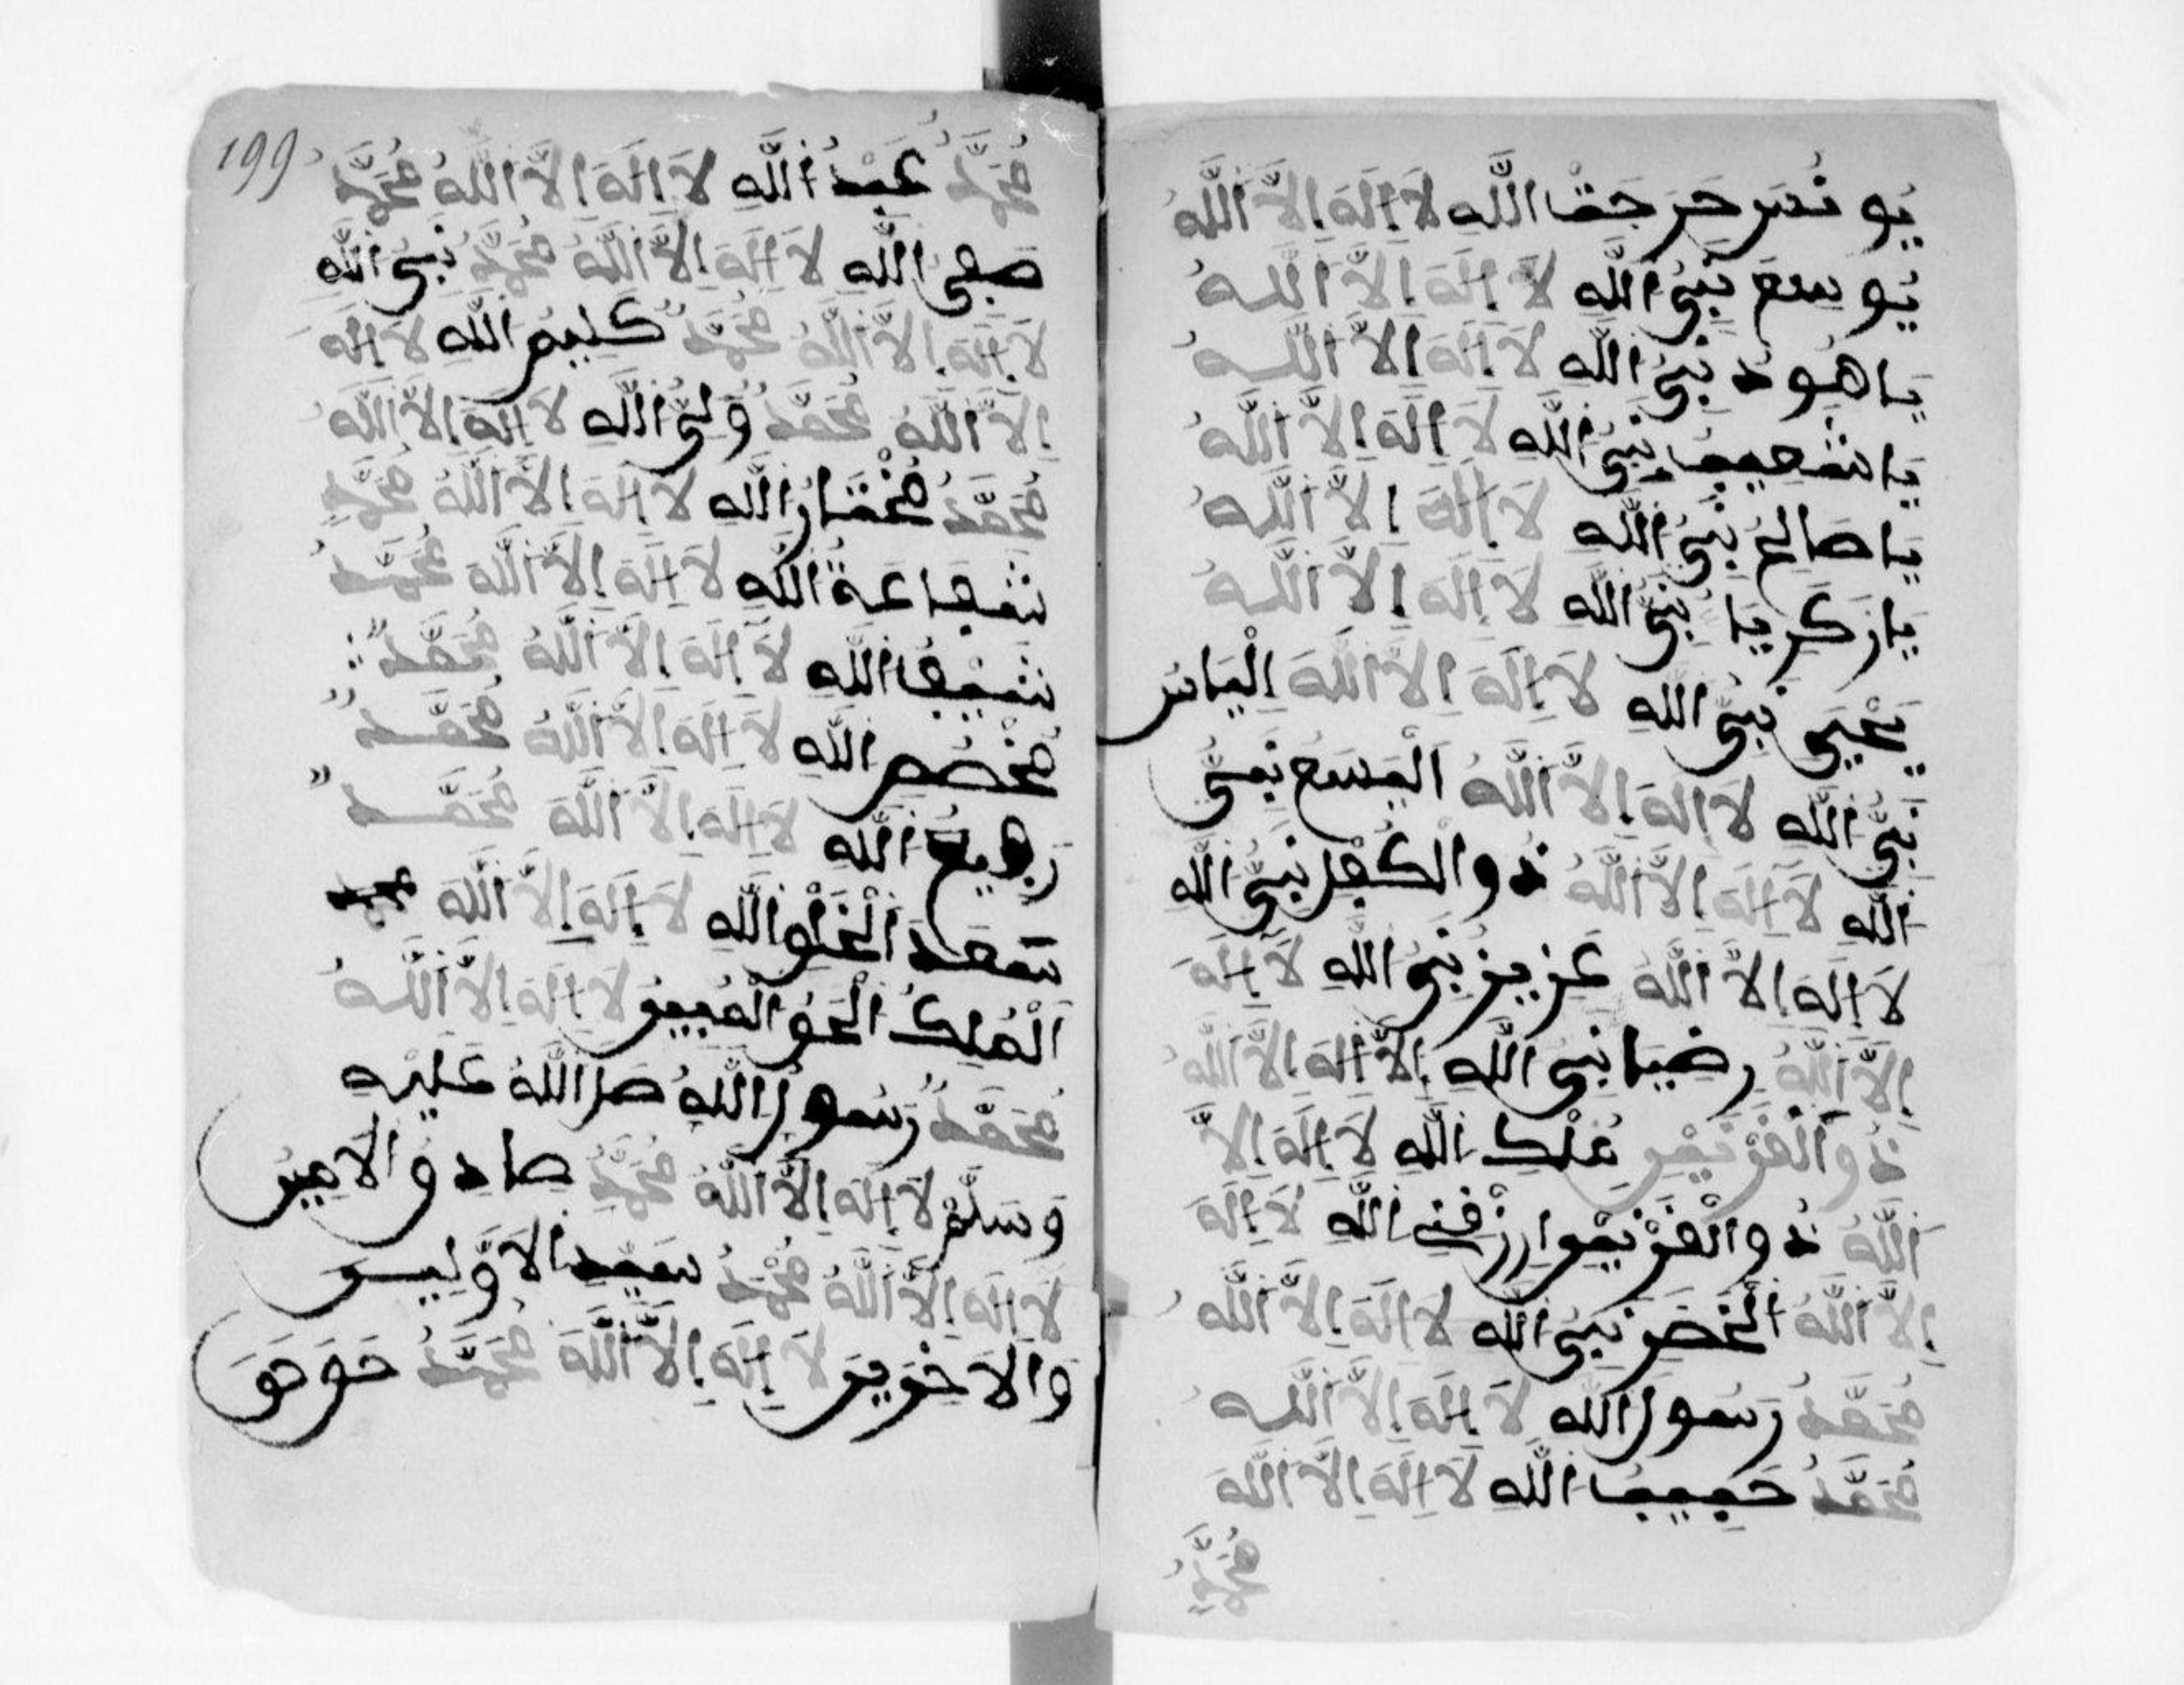 يُونُسَ حَرِجَتْ اللَّهِ لَا إِلَهَ إِلَّا اللَّهُ
يُوسِعَ نَبِيُّ اللَّهِ لَا إِلَهَ إِلَّا اللَّهُ
يَا هُودُ نَبِيُّ اللَّهِ لَا إِلَهَ إِلَّا اللَّهُ
يَا شُعَيْبُ نَبِيُّ اللَّهِ لَا إِلَهَ إِلَّا اللَّهُ
يَا صَالِحُ نَبِيُّ اللَّهِ لَا إِلَهَ إِلَّا اللَّهُ
يَا زَكَرِيَا نَبِيُّ اللَّهِ لَا إِلَهَ إِلَّا اللَّهُ
يَحْيَى نَبِيُّ اللَّهِ لَا إِلَهَ إِلَّا اللَّهَ اِلْيَاسَ
نَبِيُّ اللَّهِ لَا إِلَهَ إِلَّا اللَّهُ الْيَسَعَ نَبِيُّ
اللَّهِ لَا إِلَهَ إِلَّا اللَّهُ ذُو الْكِفْلِ نَبِيُّ اللَّهِ
لَا إِلَهَ إِلَّا اللَّهَ عَزِيزٌ نَبِيُّ اللَّهِ لَا إِلَهَ
إِلَّا اللَّهُ رضيا نَبِيُّ اللَّهِ لَا إِلَهَ إِلَّا اللَّهُ
ذُو الْقَرْنَيْنِ مُلْكِ اللَّهِ لَا إِلَهَ إِلَّا
اللَّهُ ذُو الْقَرْنَيْنِ ارْزُقْنِي اللَّهِ لَا إِلَهَ
إِلَّا اللَّهُ الْخَضِرِ نَبِيُّ اللَّهِ لَا إِلَهَ إِلَّا اللَّهُ
مُحَمَّدٌ رَسُولُ اللَّهِ لَا إِلَهَ إِلَّا اللَّهُ
مُحَمَّدٌ حَبِيبُ اللَّهِ لَا إِلَهَ إِلَّا اللَّهَ
مُحَمَّدٌ
199
مُحَمَّدٌ عَبْدُ اللَّهِ لَا إِلَهَ إِلَّا اللَّهُ مُحَمَّدٌ
صفى اللَّهِ لَا إِلَهَ إِلَّا اللَّهُ مُحَمَّدٌ نَبِيُّ اللَّهِ
لَا إِلَهَ إِلَّا اللَّهُ مُحَمَّدٌ كَلِيمُ اللَّهِ لَا إِلَهَ
إِلَّا اللَّهُ مُحَمَّدٌ وَلِيُّ اللَّهِ لَا إِلَهَ إِلَّا اللَّهُ
مُحَمَّدٌ مُخْتَارُ اللَّهِ لَا إِلَهَ إِلَّا اللَّهُ مُحَمَّدٌ
شَفَاعَةُ اللَّهِ لَا إِلَهَ إِلَّا اللَّهُ مُحَمَّدٌ
شَفِيفُ اللَّهِ لَا إِلَهَ إِلَّا اللَّهُ مُحَمَّدٌ
مُخْصَصُ اللَّهِ لَا إِلَهَ إِلَّا اللَّهُ مُحَمَّدٌ
رَفِيعُ اللَّهِ لَا إِلَهَ إِلَّا اللَّهُ مُحَمَّدٌ
سَعَدَ الْخَلْقِ اللَّهِ لَا إِلَهَ إِلَّا اللَّهَ
الْمُلْكُ الْحَقُّ الْمُبِينُ لَا إِلَهَ إِلَّا اللَّهُ
مُحَمَّدٌ رَسُولُ اللَّهِ صَلَّ اللَّهُ عَلَيْهِ
وَسَلَّمْ لَا إِلَهَ إِلَّا اللَّهُ مُحَمَّدٌ صَادِقُ الْاَمِينِ
لَا إِلَهَ إِلَّا اللَّهُ مُحَمَّدٌ سَيِّدُ الْاَوَّلِينَ
وَالْاَخِرِينَ لَا إِلَهَ إِلَّا اللَّهَ مُحَمَّدٌ حَقَ حَقَ